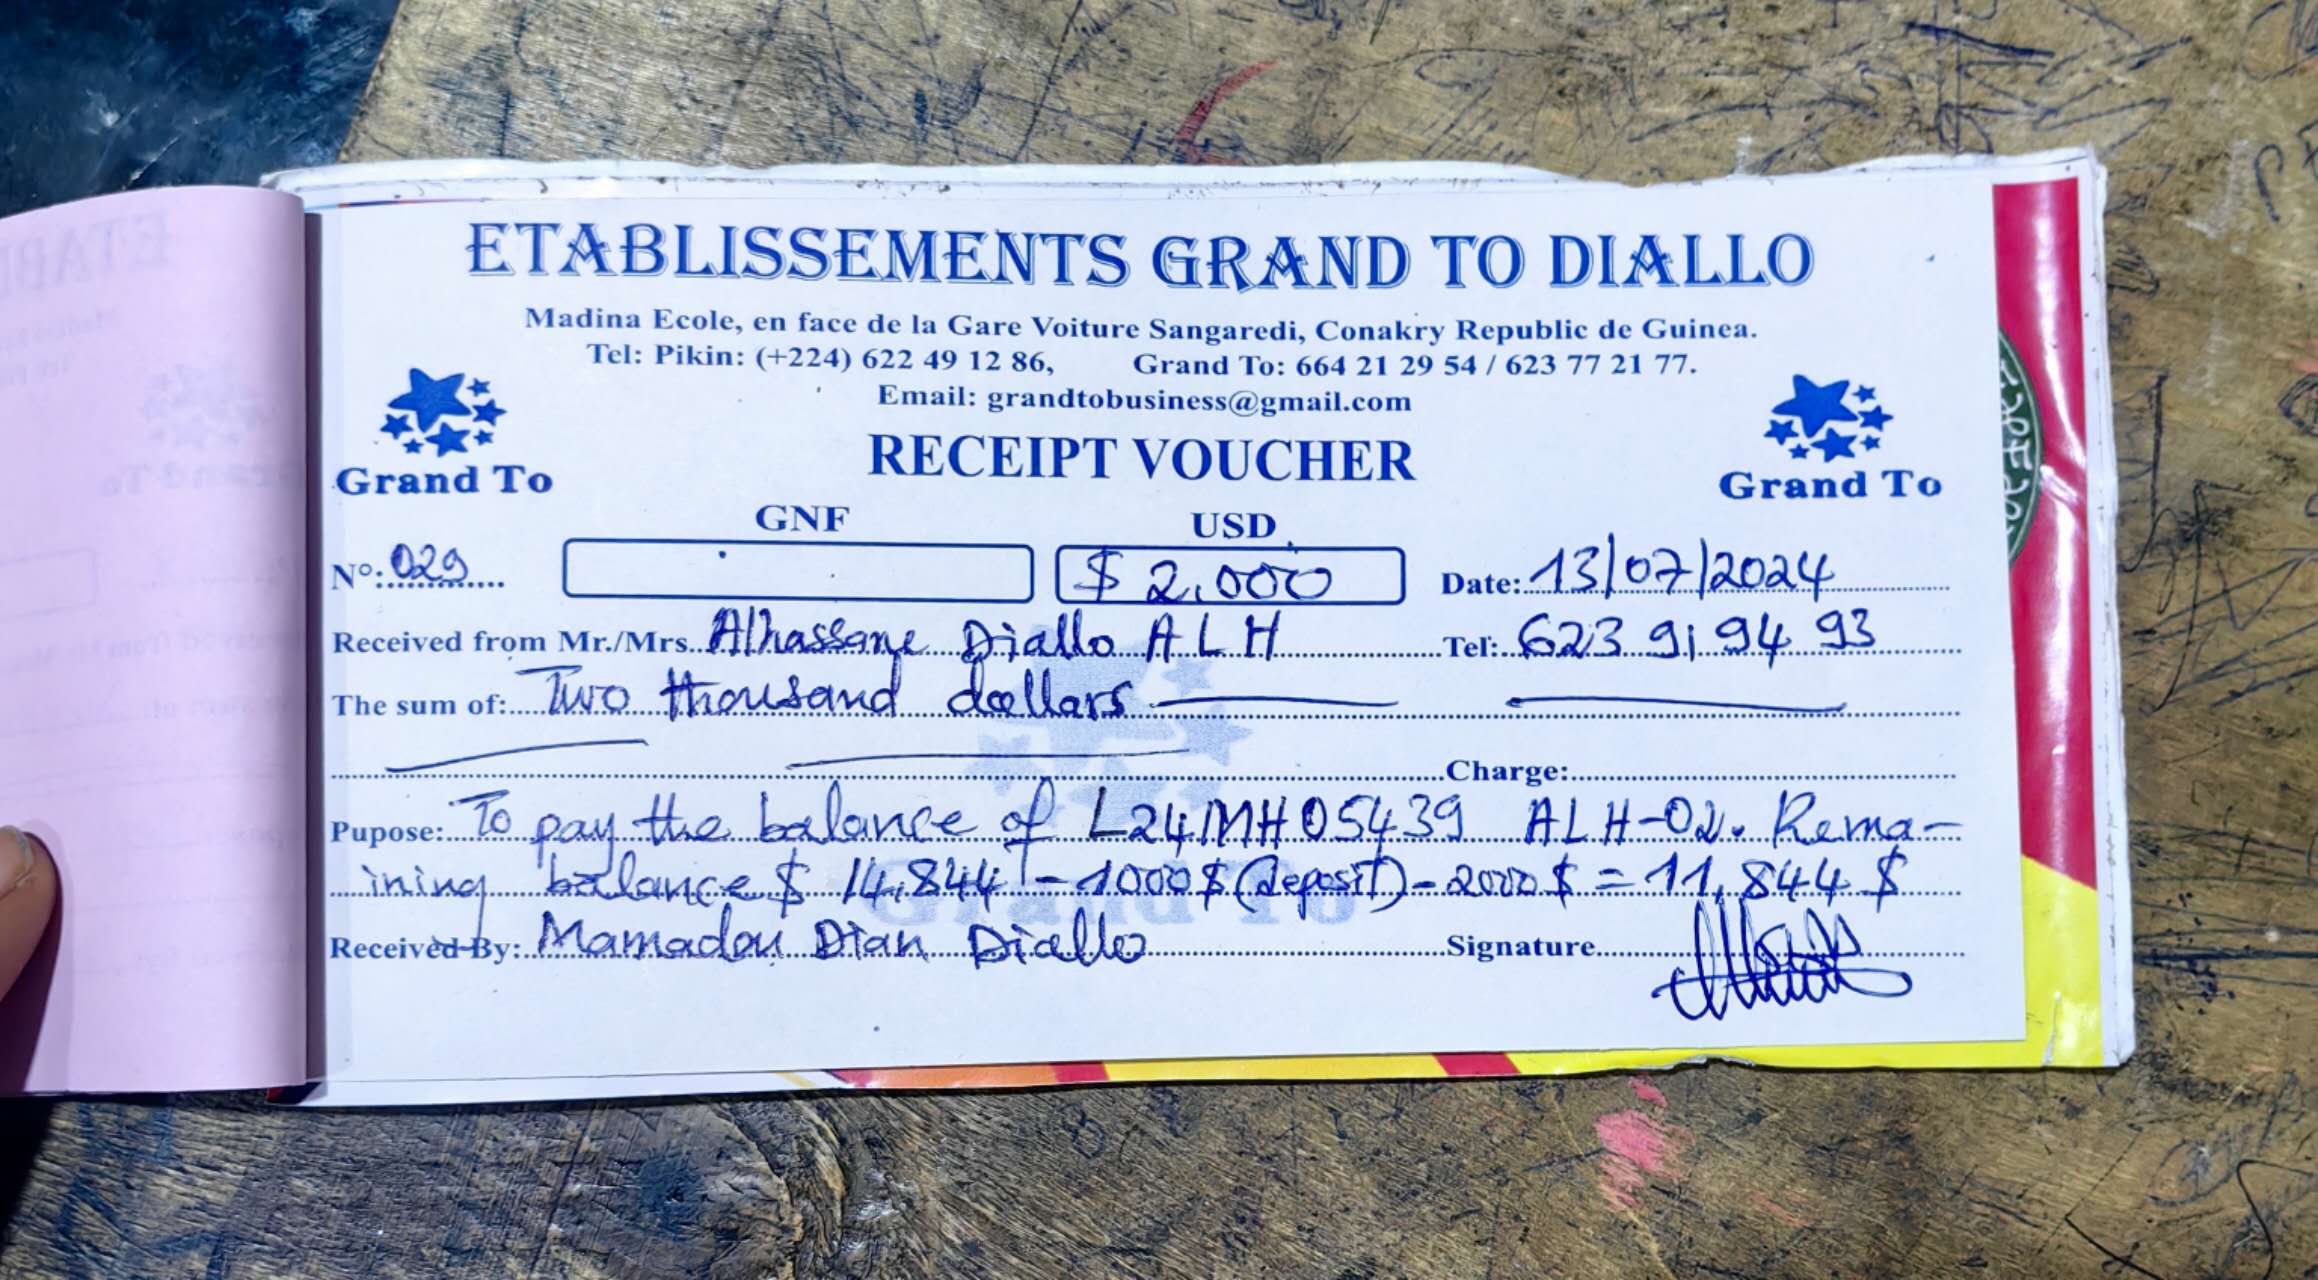 ETABLISSEMENTS GRAND TO DIALLO
Madina Ecole, en face de la Gare Voiture Sangaredi, Conakry Republic de Guinea.
Tel: Pikin: (+224) 622 49 12 86, Grand To: 664 21 29 54 / 623 77 21 77.
Email: grandtobusiness@gmail.com
RECEIPT VOUCHER
Grand To
Grand To
GNF USD
N°: 029 $ 2.000 Date: 13/07/2024
Received from Mr./Mrs. Alhassane Diallo ALH Tel: 623 91 94 93
The sum of: Two thousand dollars
Charge:
Pupose: To pay the balance of L24MH05439 ALH-02. Rema-
ining balance $ 14.844 - 1000$ (deposit) - 2000 $ = 11,844 $
Grand To
Received By: Mamadou Dian Diallo Signature